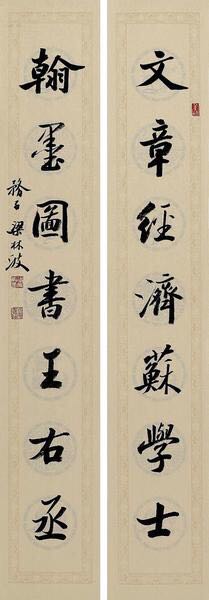 文章經濟蘇學士
翰墨圖書王右丞
梁林波